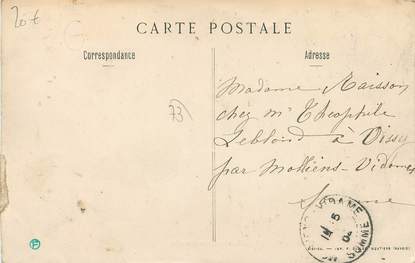 20€
CARTE POSTALE
Correspondance
Adresse
Madame Raisson
chez Mr Theophile
Leblond à Oissy
par Molliens-Vidames
Somme
73
VIDAME
15
04
SOMME